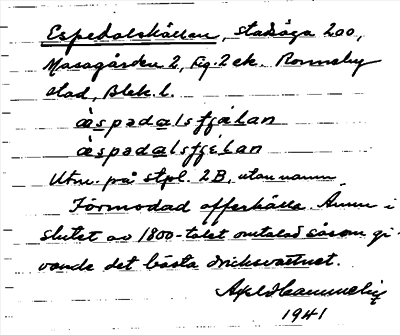 Espedalskällan, stadsäga 200,
Masagården 2, Fig. 2 ek. Ronneby
stad, Blek. l.
ὰspədalsfjälan
ὰspədalsfjélan
Utm. på stpl. 2B, utan namn.
Förmodad offerkälla. Ännu i
slutet av 1800-talet omtalad såsom gi-
vande det bästa dricksvattnet.
1941